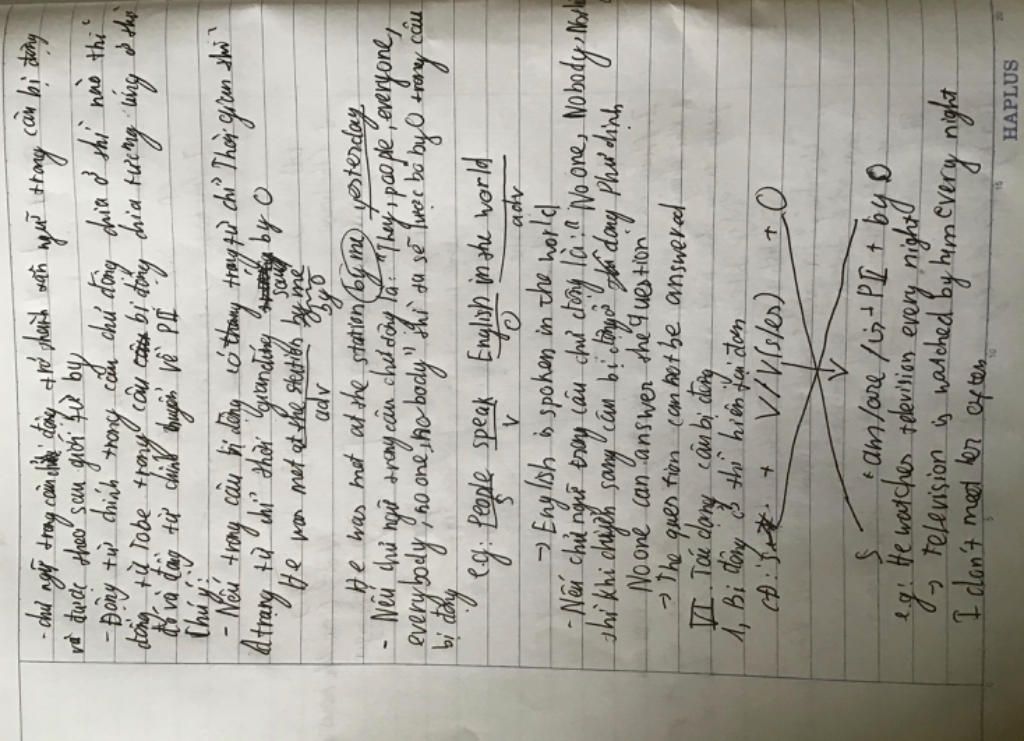 - chủ ngữ trong câu bị động trở thành tân ngữ trong câu bị động
và được theo sau giới từ by
- Động từ chính trong câu chủ động chia ở thì nào thì
động từ Tobe trong câu bị động chia tương ứng ở thì
đó và động từ chính chuyển về PII
Chú ý:
- Nếu trong câu bị động có trạng từ chỉ Thời gian thì
trạng từ chỉ thời gian đứng sau by O
He was met at the station by me
adv by O
He was met at the station by me yesterday
- Nếu chủ ngữ trong câu chủ động là: "They, people, everyone,
everybody, no one, no body" thì ta sẽ lược bỏ by O trong câu
bị động
e.g: People speak English in the world
S V O adv
→ English is spoken in the world
- Nếu chủ ngữ trong câu chủ động là: No one, Nobody,
thì khi chuyển sang câu bị động ở dạng phủ định
No one can answer the question
→ The question can not be answered
VI Các dạng câu bị động
1, Bị động ở thì hiện tại đơn
CĐ: S + V/V(s/es) + O
S + am/are/is + PII + by O
e.g: He watches television every night
→ Television is watched by him every night
I don't meet her often
HAPLUS
5
10
15
20